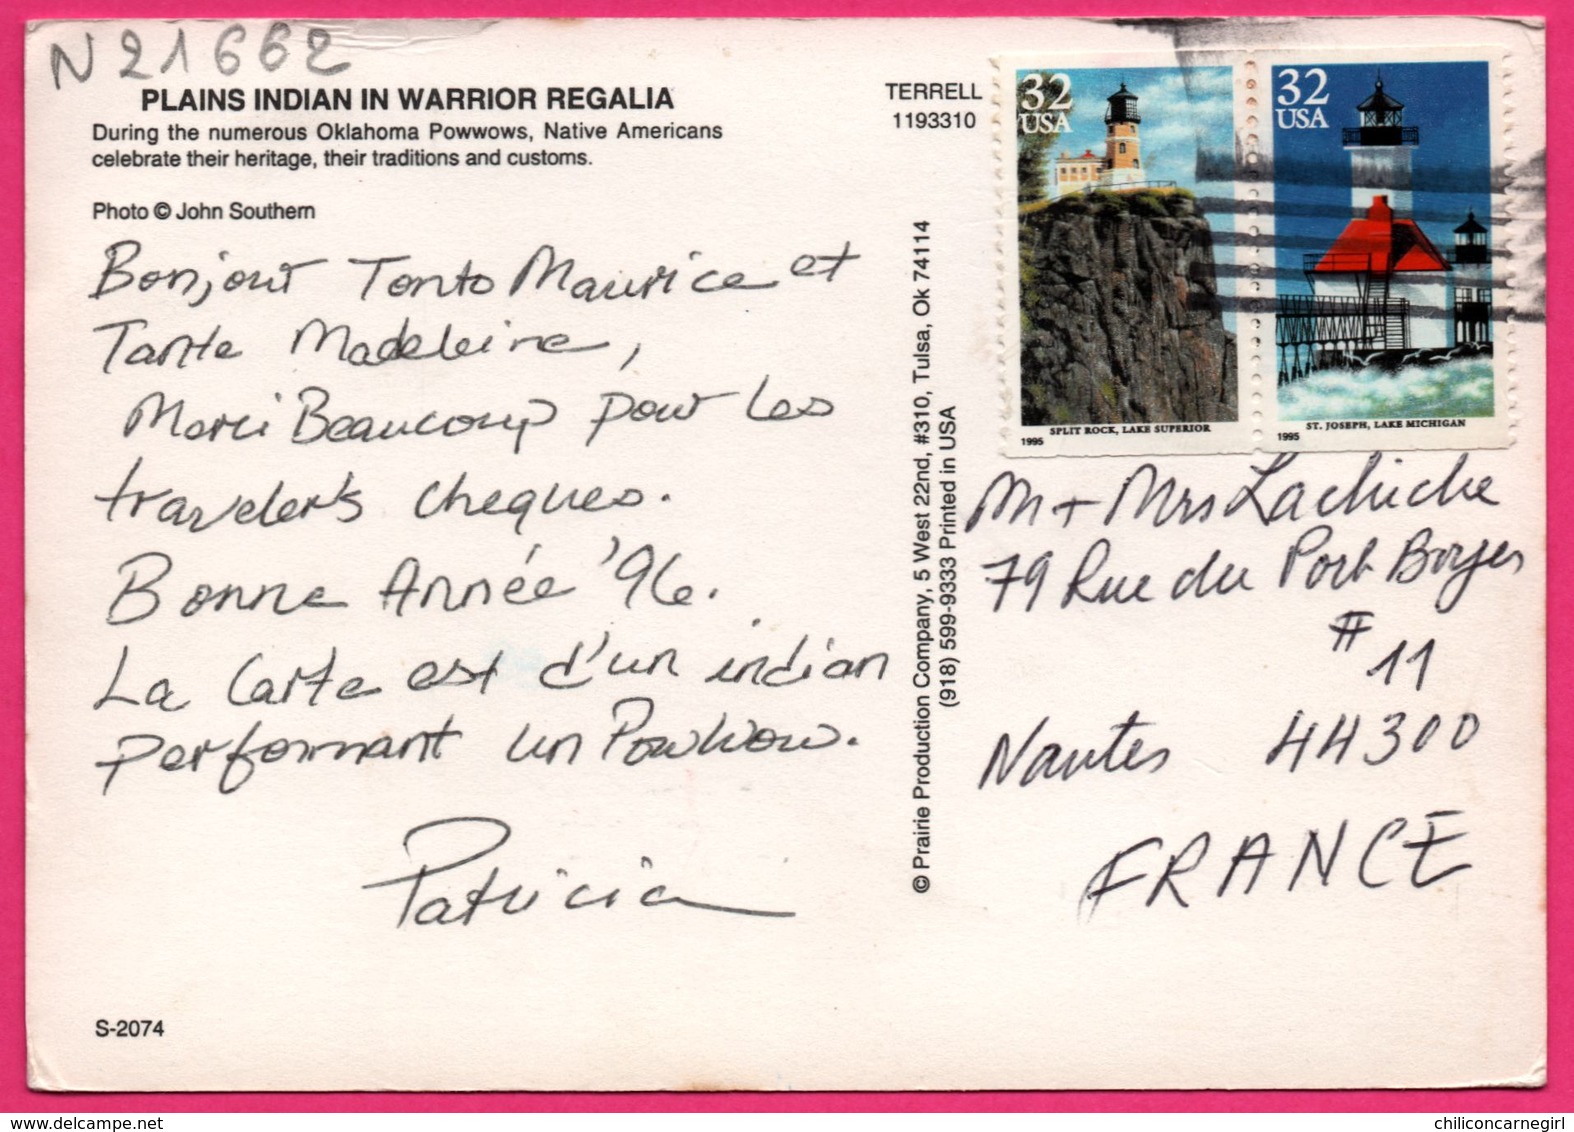 N21662
PLAINS INDIAN IN WARRIOR REGALIA
During the numerous Oklahoma Powwows, Native Americans
celebrate their heritage, their traditions and customs.
Photo © John Southern
TERRELL
1193310
Bonjour Tonto Maurice et
Tante Madeleine,
Merci Beaucoup pour les
traveler's cheques.
Bonne Année '96.
La Carte est d'un indian
performant un PowWow.
Patricia
S-2074
© Prairie Production Company, 5 West 22nd, #310, Tulsa, Ok 74114
(918) 599-9333 Printed in USA
32
USA
1995
SPLIT ROCK, LAKE SUPERIOR
32
USA
1995
ST. JOSEPH, LAKE MICHIGAN
M + Mrs Lachiche
79 Rue du Port Boyer
# 11
Nantes 44300
FRANCE
www.delcampe.net
chiliconcarnegirl